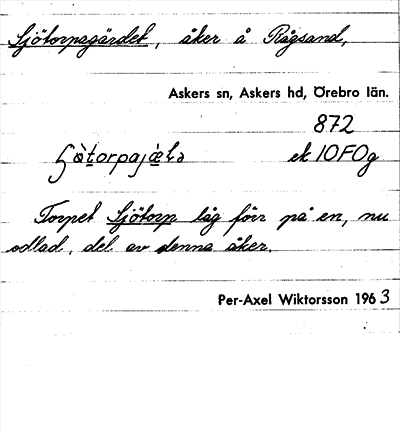 Sjötorpagärdet, åker å Rågsand,
Askers sn, Askers hd, Örebro län.
872
ek 10F0g
Torpet Sjötorp låg förr på en, nu
odlad, del av denna åker.
Per-Axel Wiktorsson 1963